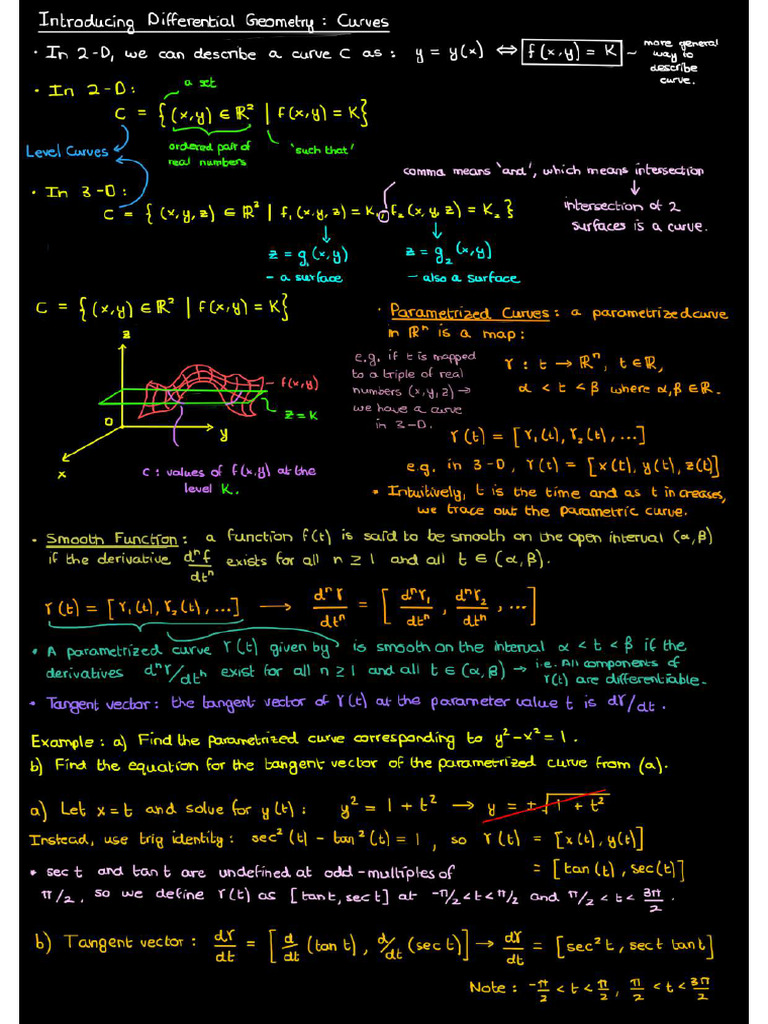 Introducing Differential Geometry : Curves
• In 2-D, we can describe a curve C as : y = y(x) ⟺ f(x,y) = K ~ more general way to describe curve.
• In 2-D: a set
C = {(x,y) ∈ ℝ² | f(x,y) = K}
Level Curves
ordered pair of real numbers
'such that'
comma means 'and', which means intersection
↓
intersection of 2 surfaces is a curve.
• In 3-D:
C = {(x,y,z) ∈ ℝ² | f₁(x,y,z) = K₁, f₂(x,y,z) = K₂}
z = g₁(x,y)
- a surface
z = g₂(x,y)
- also a surface
C = {(x,y) ∈ ℝ² | f(x,y) = K}
z
f(x,y)
z = K
0
y
x
C : values of f(x,y) at the
level K.
• Parametrized Curves : a parametrized curve
in ℝⁿ is a map :
e.g. if t is mapped
to a triple of real
numbers (x,y,z) →
we have a curve
in 3-D.
γ : t → ℝⁿ, t ∈ ℝ,
α < t < β where α,β ∈ ℝ.
γ(t) = [γ₁(t), γ₂(t), ...]
e.g. in 3-D, γ(t) = [x(t), y(t), z(t)]
• Intuitively, t is the time and as t increases,
we trace out the parametric curve.
• Smooth Function : a function f(t) is said to be smooth on the open interval (α,β)
if the derivative dⁿf/dtⁿ exists for all n ≥ 1 and all t ∈ (α,β).
γ(t) = [γ₁(t), γ₂(t), ...] → dⁿγ/dtⁿ = [dⁿγ₁/dtⁿ, dⁿγ₂/dtⁿ, ...]
• A parametrized curve γ(t) given by is smooth on the interval α < t < β if the
derivatives dⁿγ/dtⁿ exist for all n ≥ 1 and all t ∈ (α,β) → i.e. All components of γ(t) are differentiable.
• Tangent vector : the tangent vector of γ(t) at the parameter value t is dγ/dt.
Example : a) Find the parametrized curve corresponding to y² - x² = 1.
b) Find the equation for the tangent vector of the parametrized curve from (a).
a) Let x = t and solve for y(t) : y² = 1 + t² → y = ±√(1 + t²)
Instead, use trig identity : sec²(t) - tan²(t) = 1, so γ(t) = [x(t), y(t)]
= [tan(t), sec(t)]
• sec t and tan t are undefined at odd-multiples of
π/2, so we define γ(t) as [tan t, sec t] at -π/2 < t < π/2 and π/2 < t < 3π/2.
b) Tangent vector : dγ/dt = [d/dt (tan t), d/dt (sec t)] → dγ/dt = [sec²t, sec t tan t]
Note : -π/2 < t < π/2, π/2 < t < 3π/2